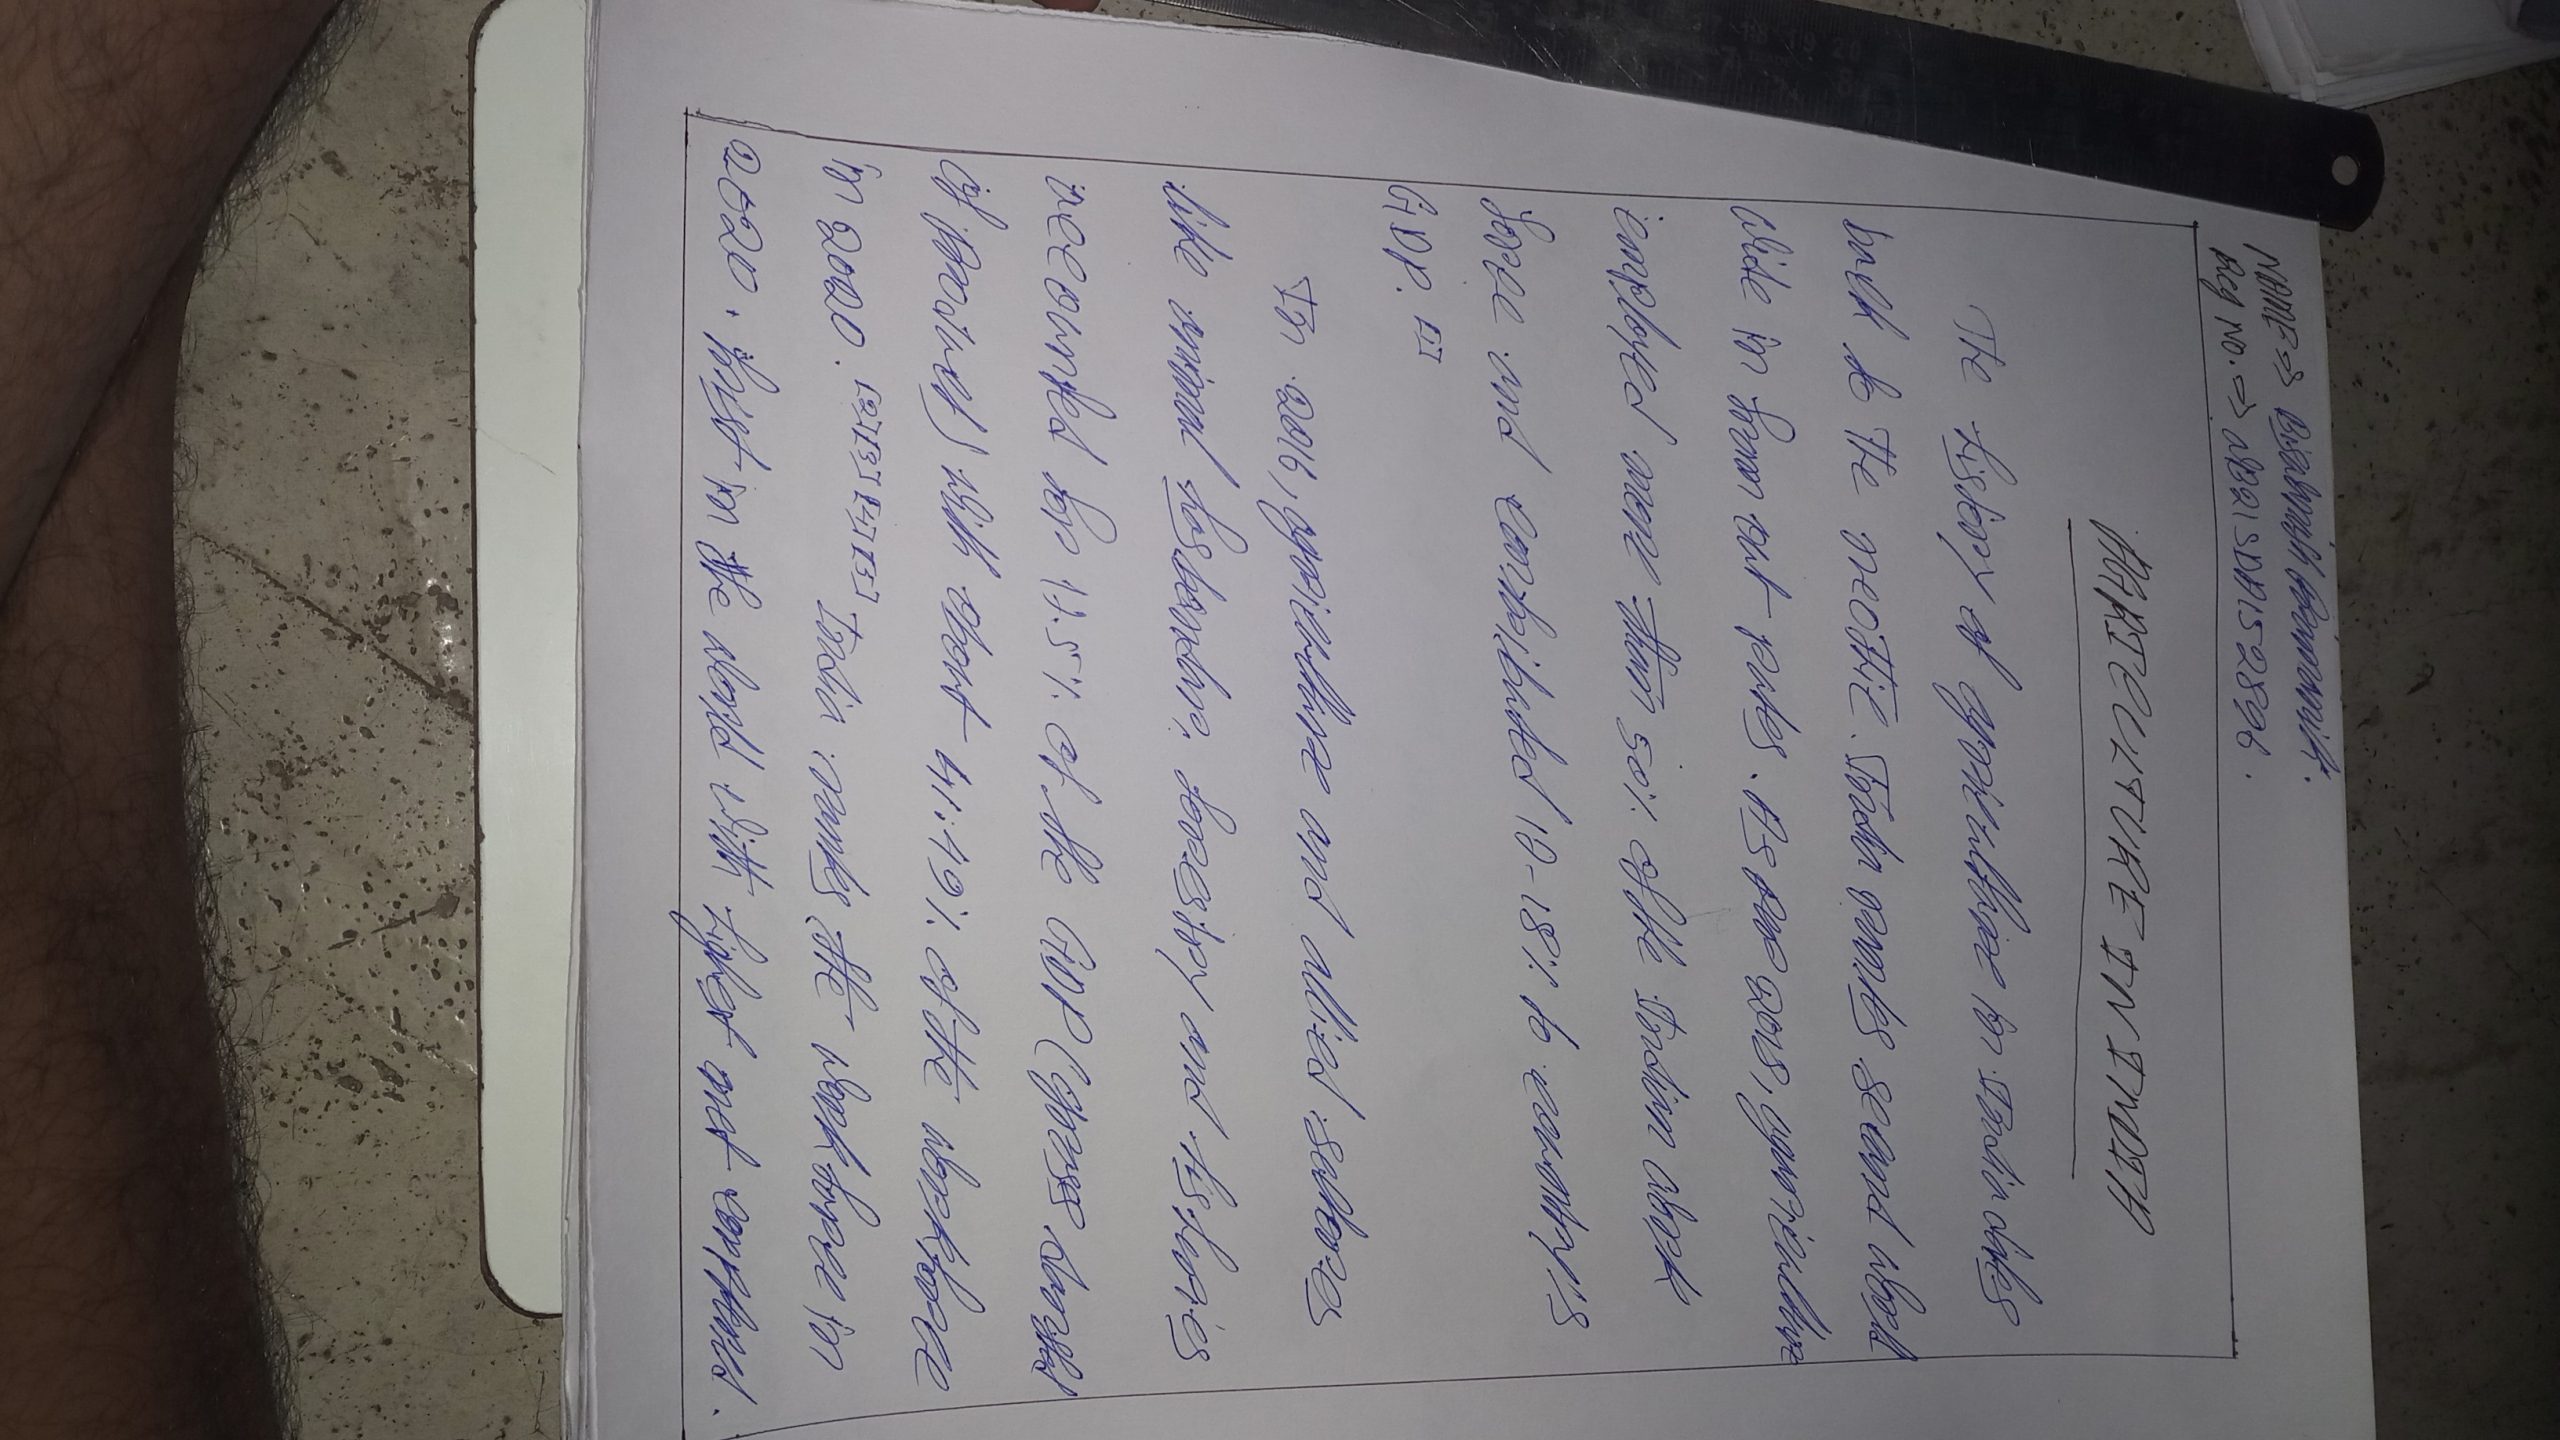 NAME => 
Reg No. => 
AGRICULTURE IN INDIA
The history of agriculture in India dates
back to the neothic. India ranks second world
wide in farm out puts. As per 2018, agriculture
employed more than 50% of the Indian work
force and contributed 17-18% to country's
GDP. [1]
In 2016, agriculture and allied sectors
like animal husbandry, forestry and fisheries
accounted for 17.5% of the GDP (gross
of with about 41.49% of the workforce
in 2020. [2] [3] [4] [5] India ranks the workforce in
2020. first in the world with highest net cropland.